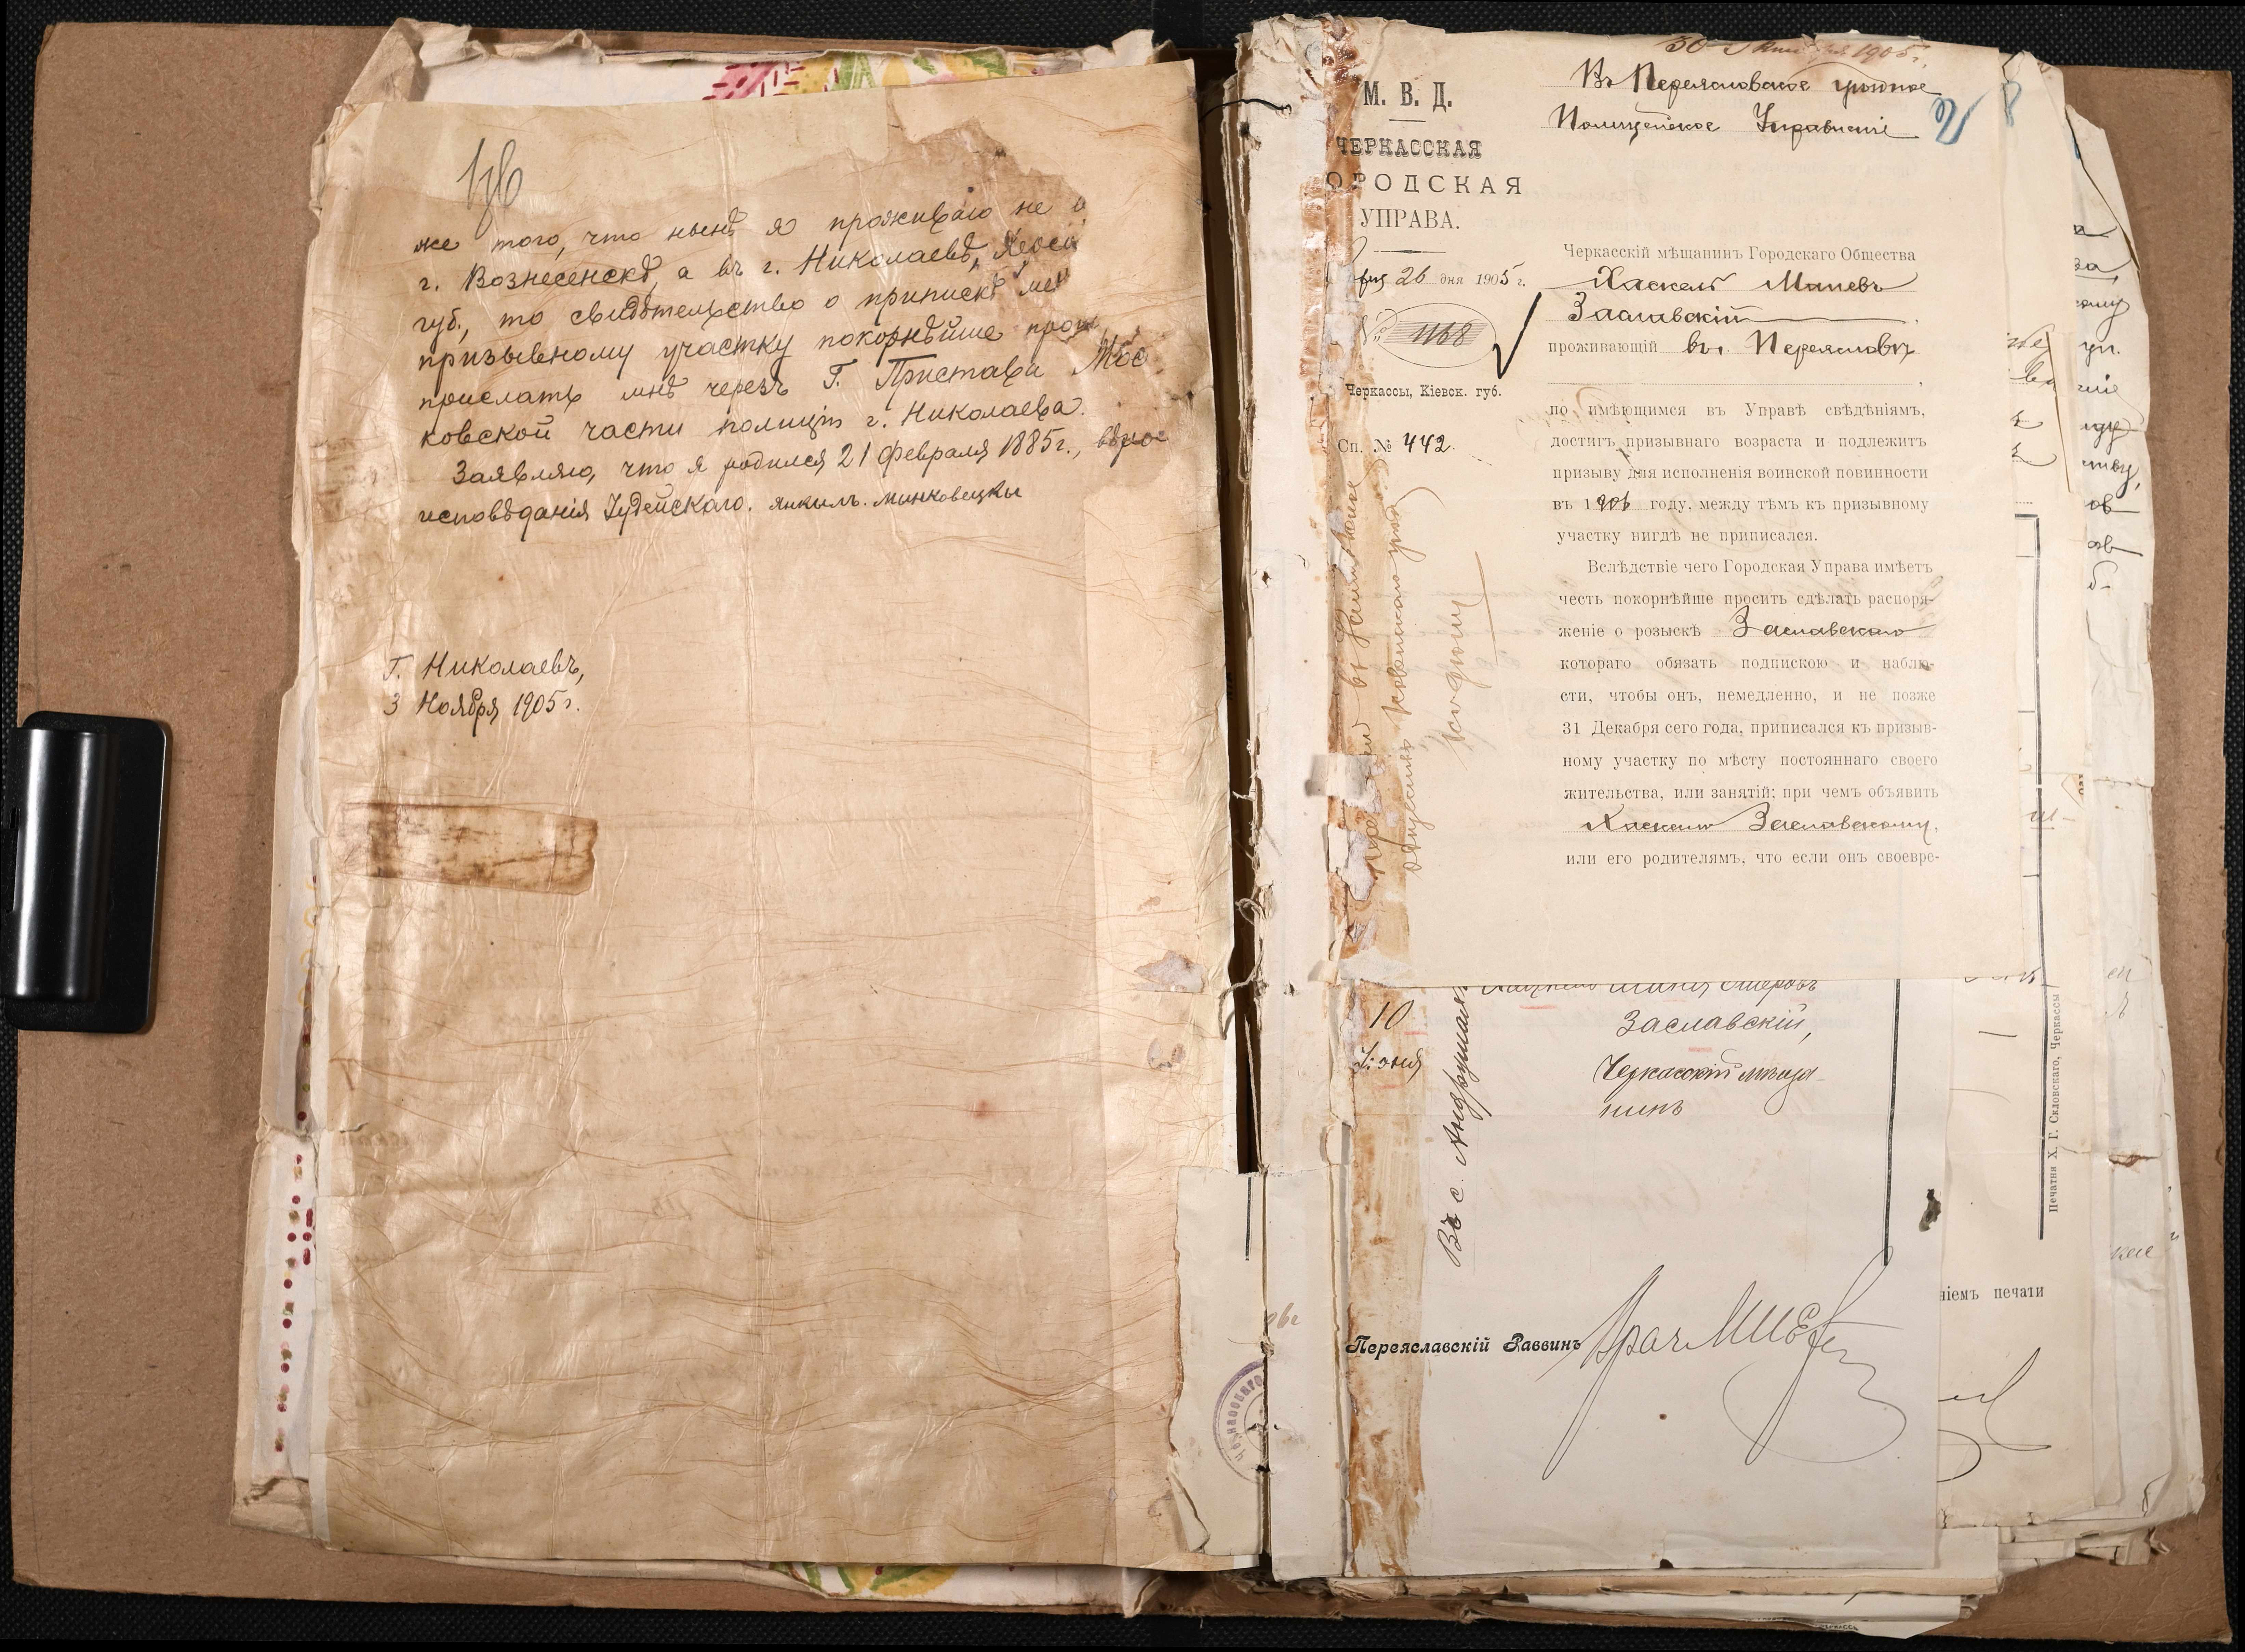 же того, что нынѣ я проживаю не въ
г. Вознесенскѣ, а въ г. Николаевѣ, Херсо
губ., то свидѣтельство о припискѣ
призывному участку покорнѣйше прошу
прислать мнѣ черезъ Г. Пристава Мос
ковской части полиціи г. Николаева.
Заявляю, что я родился 21 Февраля 1885 г.,
исповѣданія Іудейскаго. Янкиль Минковецкы
Г. Николаевъ,
3 Ноября 1905 г.
30 Октября 1905 г.
М. В. Д.
ЧЕРКАССКАЯ
ОРОДСКАЯ
УПРАВА.
26 дня 1905 г.
№ 1168
Черкассы, Кіевск. губ.
Сп. № 442
Въ Переяславское уѣздное
Полицейское Управленіе
Черкасскій мѣщанинъ Городскаго Общества
Хаскель
Заславскій
проживающій въ г. Переяславѣ
по имѣющимся въ Управѣ свѣдѣніямъ,
достигъ призывнаго возраста и подлежитъ
призыву для исполненія воинской повинности
въ 1906 году, между тѣмъ къ призывному
участку нигдѣ не приписался.
Вслѣдствіе чего Городская Управа имѣетъ
честь покорнѣйше просить сдѣлать распоря-
женіе о розыскѣ Заславскаго
котораго обязать подпискою и наблю-
сти, чтобы онъ, немедленно, и не позже
31 Декабря сего года, приписался къ призыв-
ному участку по мѣсту постояннаго своего
жительства, или занятій: при чемъ объявить
Хаскелю Заславскому,
или его родителямъ, что если онъ своевре-
10
Іюня
Въ с. Андруши
Заславскій,
Черкасскій мѣща-
нинъ
Переяславскій Раввинъ
Печатня Х. Г. Скловскаго, Черкассы
ніемъ печати